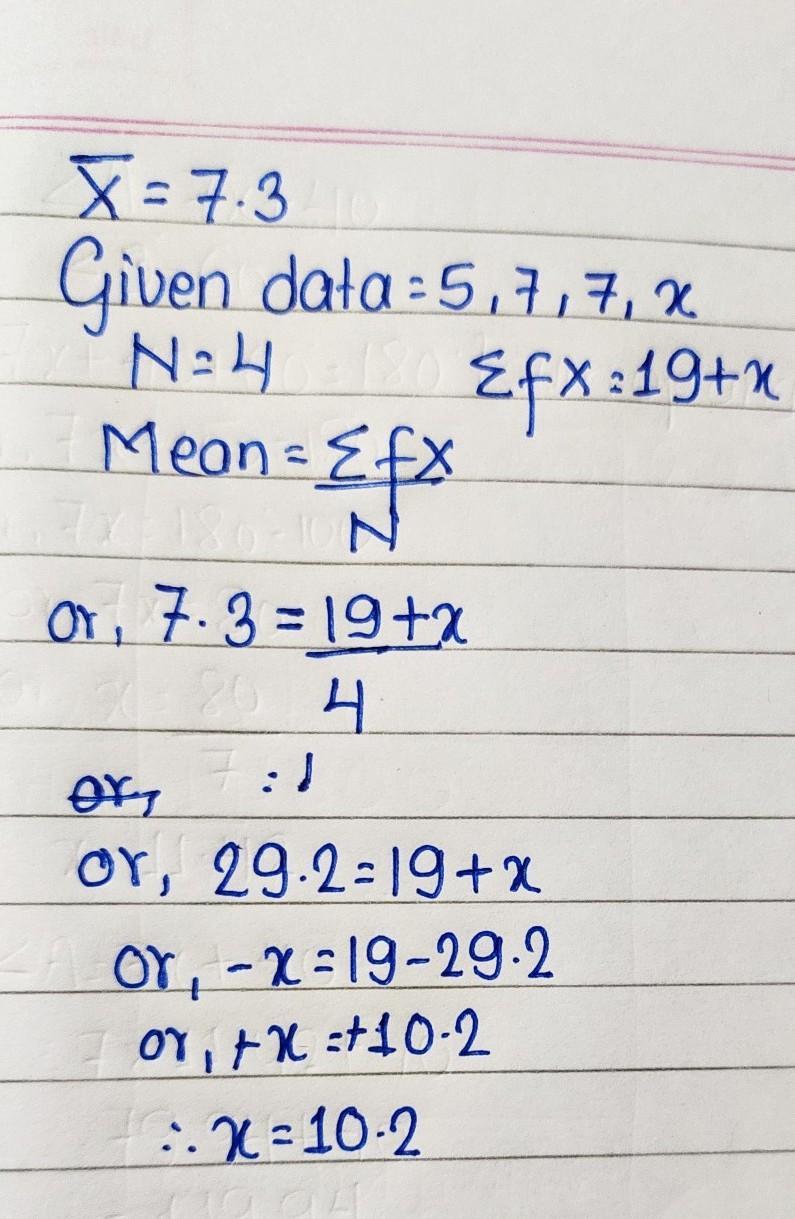 X̅ = 7.3
Given data = 5, 7, 7, x
N = 4 Σfx = 19+x
Mean = Σfx
N
or, 7.3 = 19+x
4
or, = 1
or, 29.2 = 19+x
or, -x = 19-29.2
or, +x = +10.2
∴ x = 10.2